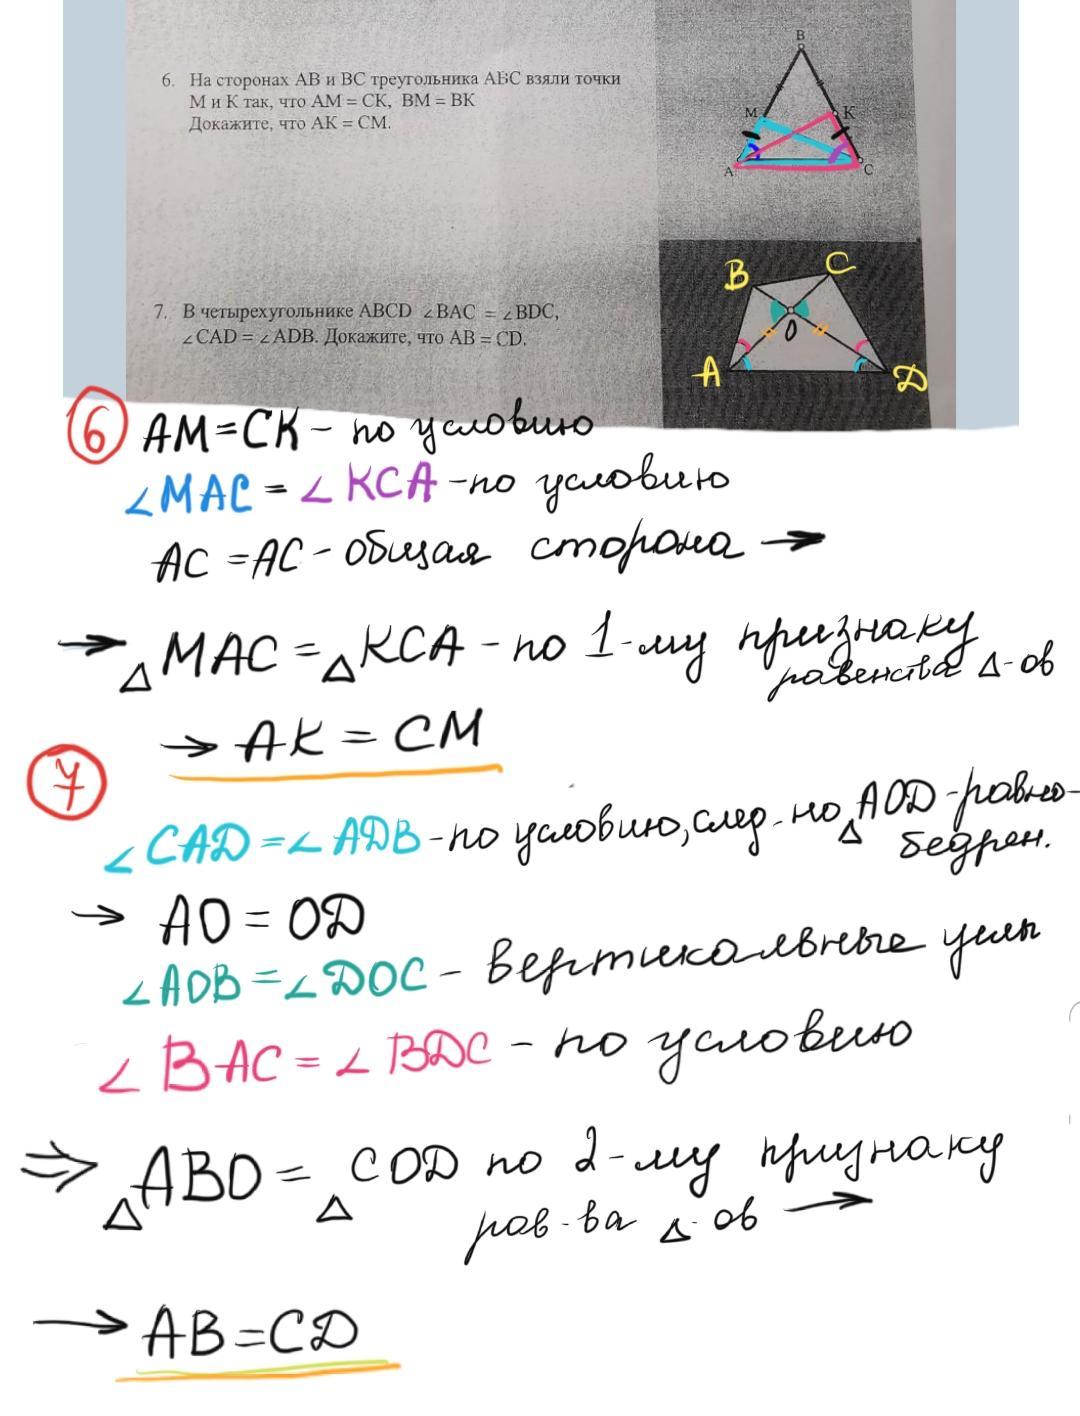 6. На сторонах АВ и ВС треугольника АБС взяли точки
М и К так, что АМ = СК, ВМ = ВК
Докажите, что АК = СМ.
В
М
К
А
С
7. В четырехугольнике ABCD ∠BAC = ∠BDC,
∠CAD = ∠ADB. Докажите, что АВ = CD.
B
C
O
A
D
6 АМ=СК - по условию
∠MAC = ∠KCA - по условию
АС = АС - общая сторона →
→ △MAC = △KCA - по 1-му признаку
равенства △-ов
→ АК = СМ
7
∠CAD = ∠ADB - по условию, след-но △AOD - равно-
бедрен.
→ AO = OD
∠AOB = ∠DOC - вертикальные углы
∠BAC = ∠BDC - по условию
⇒ △ABO = △COD по 2-му признаку
рав-ва △-ов →
→ AB = CD